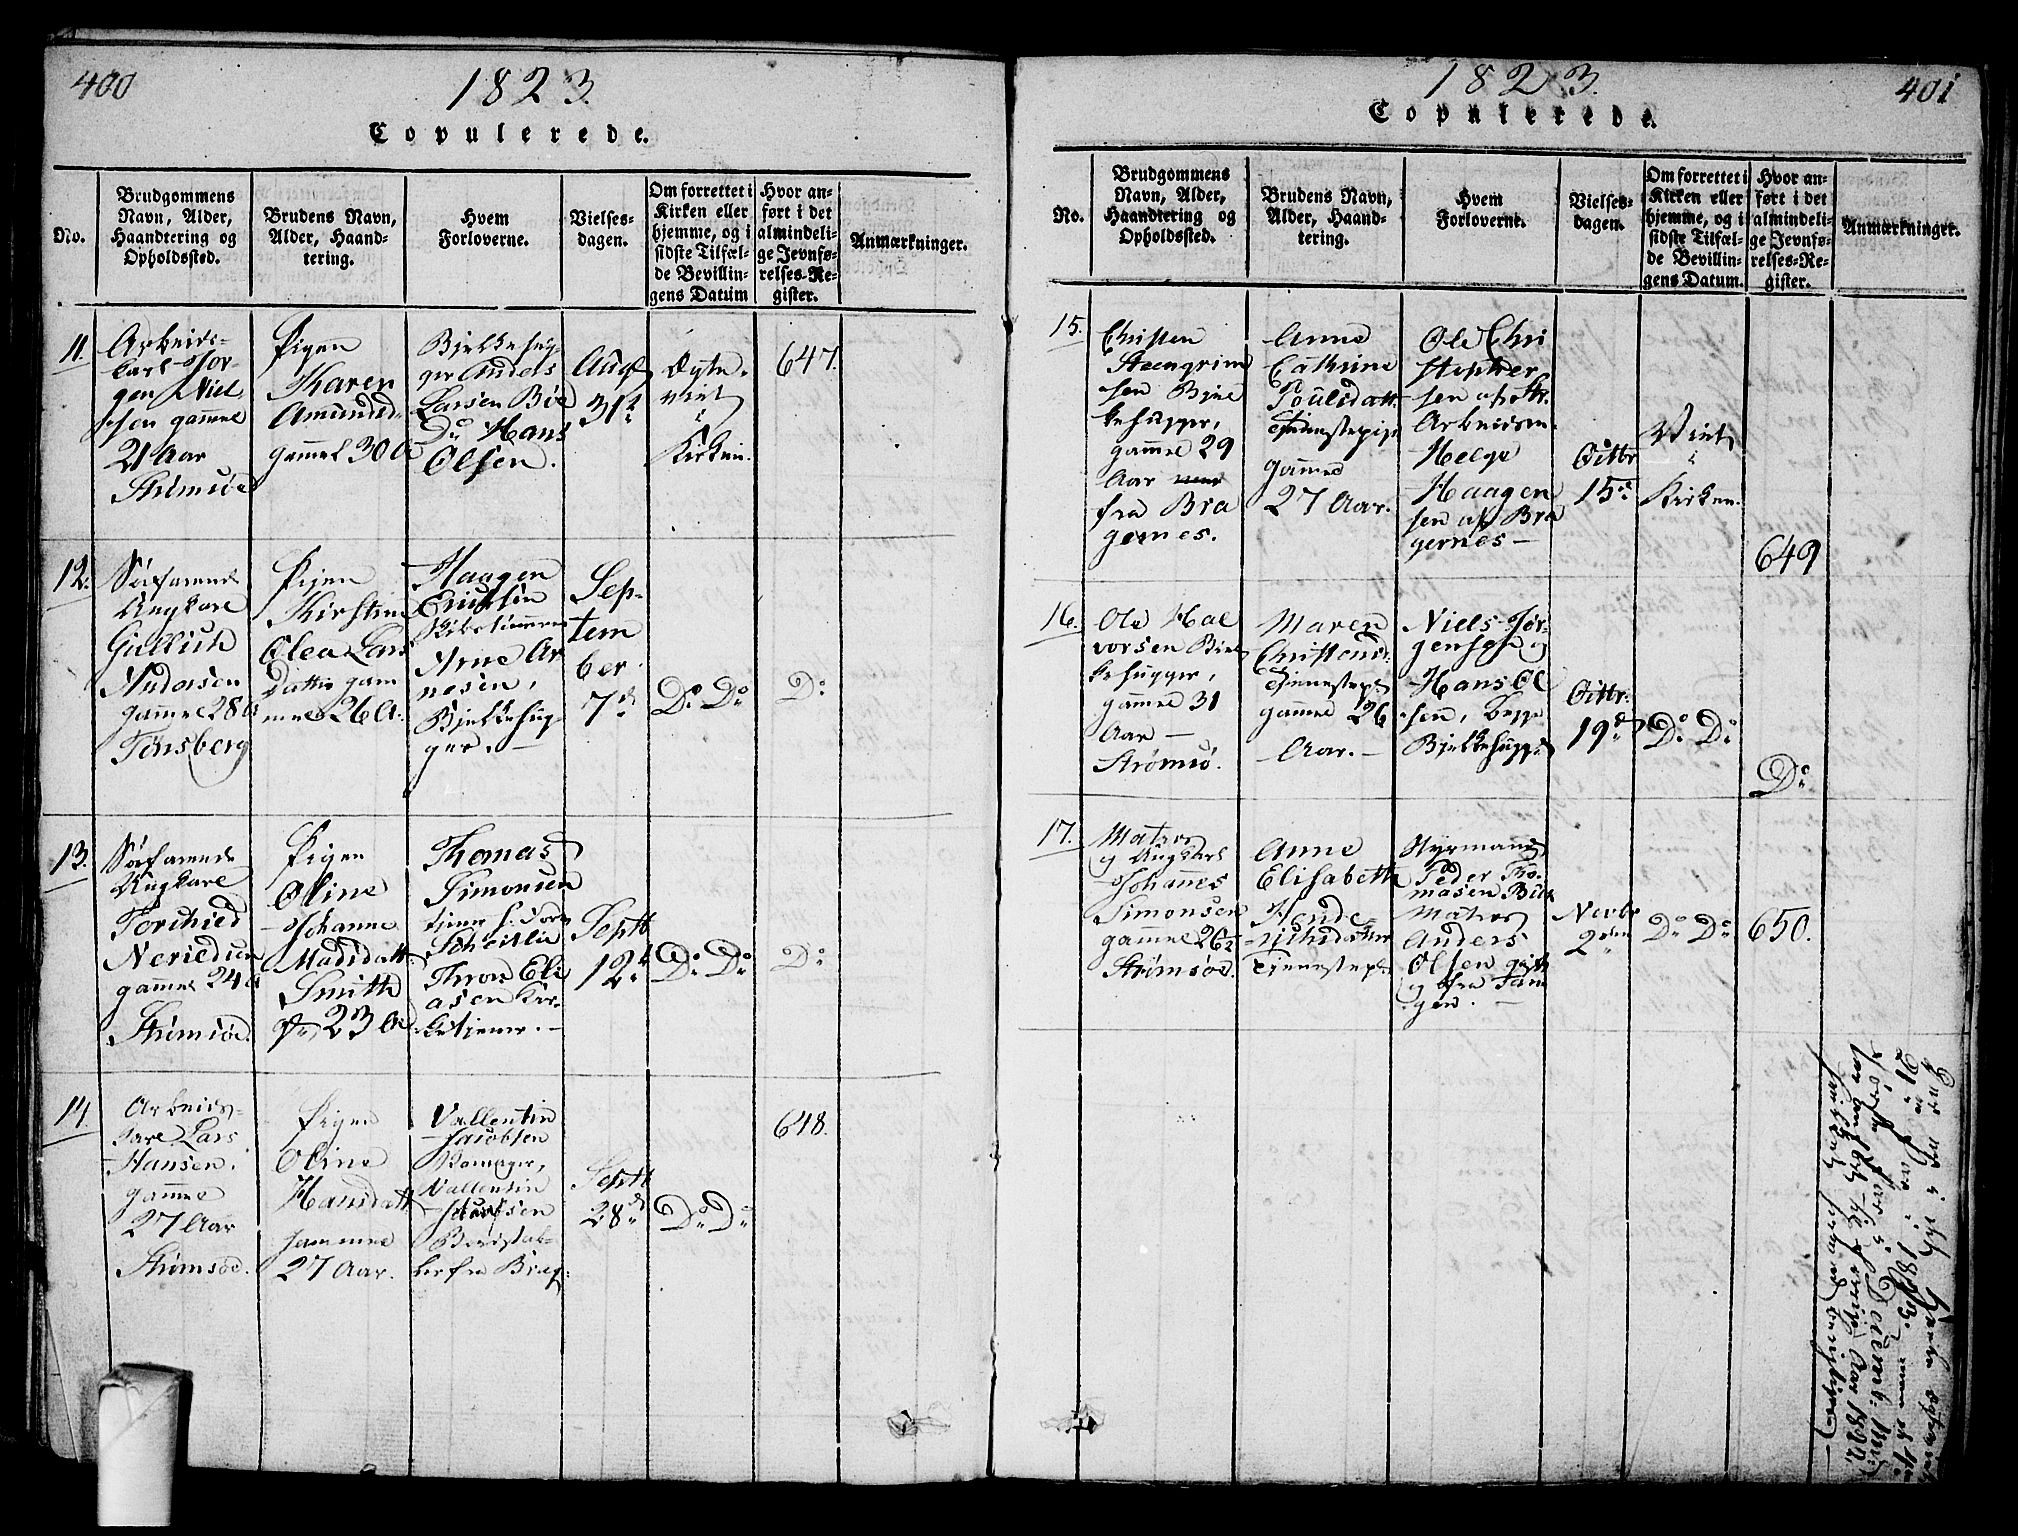 400
1823.
Copulerede.
No.
Brudgommens
Navn, Alder,
Haandtering og
Opholdssted.
Brudens Navn,
Alder, Haand-
tering.
Hvem
Forloverne.
Vielses-
dagen.
Om forrettet i
Kirken eller
hjemme, og i
sidste Tilfæl-
de Bevillin-
gens Datum
Hvor an-
ført i det
almindeli-
ge Jevnfø-
relses-Re-
gister.
Anmærkninger.
11.
Arbeids-
karl Jør-
gen Niel
sen gamme
21 Aar
Strømsøe
Pigen
Karen
Amundsd
gammel 30 A
Bjelkehug-
ger Anders
Larsen Bøe
Do Hans
Olsen.
Aug
31t
viet
i
Kirken.
647.
12.
Søefarende
Ungkarl
Gullich
Andersen
gamme 28 A
Tønsberg
Pigen
Kirstine
Olea Lars
Datter gam
mel 26 A.
Haagen
Ericksen
Arne Ar
nesen,
Bjelkehug-
ger.
Sep-
tem
ber
7d
Do Do
Do
13.
Søefarende
Ungkarl
gammel 24 A
Strømsøe.
Pigen
Oline
Johanne
Madsdatt.
Smith
23 A
Thomas
Simonsen
Thron Eli
asen Kir-
ketjener.
Septb
12t
Do Do
Do
14.
Arbeids-
karl Lars
Hansen.
gamme
27 Aar
Strømsøe.
Pigen
Oline
Hansdatt
gamme
27 Aar.
Vallentin
Jacobsen
Vallentin
Jacobsen
fra Brag:
Septb
28d
Do Do
648.
1823.
401
Copulerede.
No.
Brudgommens
Navn, Alder,
Haandtering og
Opholdssted.
Brudens Navn,
Alder, Haand-
tering.
Hvem
Forloverne.
Vielses-
dagen.
Om forrettet i
Kirken eller
hjemme, og i
sidste Tilfæl-
de Bevillin-
gens Datum.
Hvor an-
ført i det
almindeli-
ge Jevnfø-
relses-Re-
gister.
Anmærkninger.
15.
Christen
Steengrim
sen Bjel
kehugger,
gamme 29
Aar
fra Bra
gernes.
Anne
Cathrine
Poulsdatt.
Tjenestepige
gamme
27 Aar.
Ole Chri
stopher
sen af Str.
Arbeidsm.
Helge
Haagen
sen af Bra
gernes
Octbr
15d
Viet
i
Kirken.
649
16.
Ole Hal
vorsen Bjel
kehugger,
gamme 31
Aar
Strømsø.
Maren
Christensd
Tjenestep.
gamme 26
Aar.
Niels Jør-
gensen og
Hans Ol
sen, begge
Bjelkehugge
Octbr.
19d
Do Do
Do
17.
Matros
og Ungkarl
Johannes
Simonsen
gamme 26½
Strømsøe.
Anne
Elisabeth
Hende-
richsdatter
Tjenestep.
Styrmand
Peder Tho
masen
Matros
Anders
Olsen
Novbr
2den
Do Do
650.